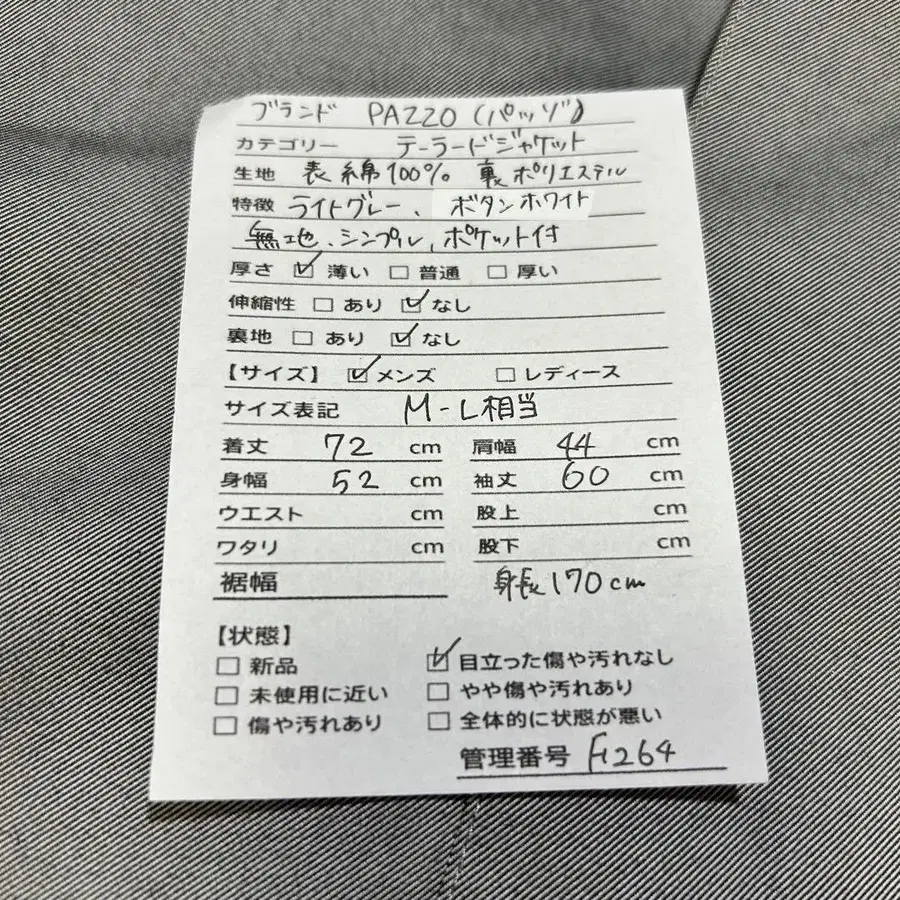 ブランド PAZZO (パッゾ)
カテゴリー テーラードジャケット
生地 表 綿100% 裏 ポリエステル
特徴 ライトグレー、ボタンホワイト
無地、シンプル、ポケット付
厚さ ☑ 薄い ☐ 普通 ☐ 厚い
伸縮性 ☐ あり ☑ なし
裏地 ☐ あり ☑ なし
【サイズ】 ☑ メンズ ☐ レディース
サイズ表記 M-L相当
着丈 72 cm 肩幅 44 cm
身幅 52 cm 袖丈 60 cm
ウエスト cm 股上 cm
ワタリ cm 股下 cm
裾幅 身長170cm
【状態】
☐ 新品 ☑ 目立った傷や汚れなし
☐ 未使用に近い ☐ やや傷や汚れあり
☐ 傷や汚れあり ☐ 全体的に状態が悪い
管理番号 F1264